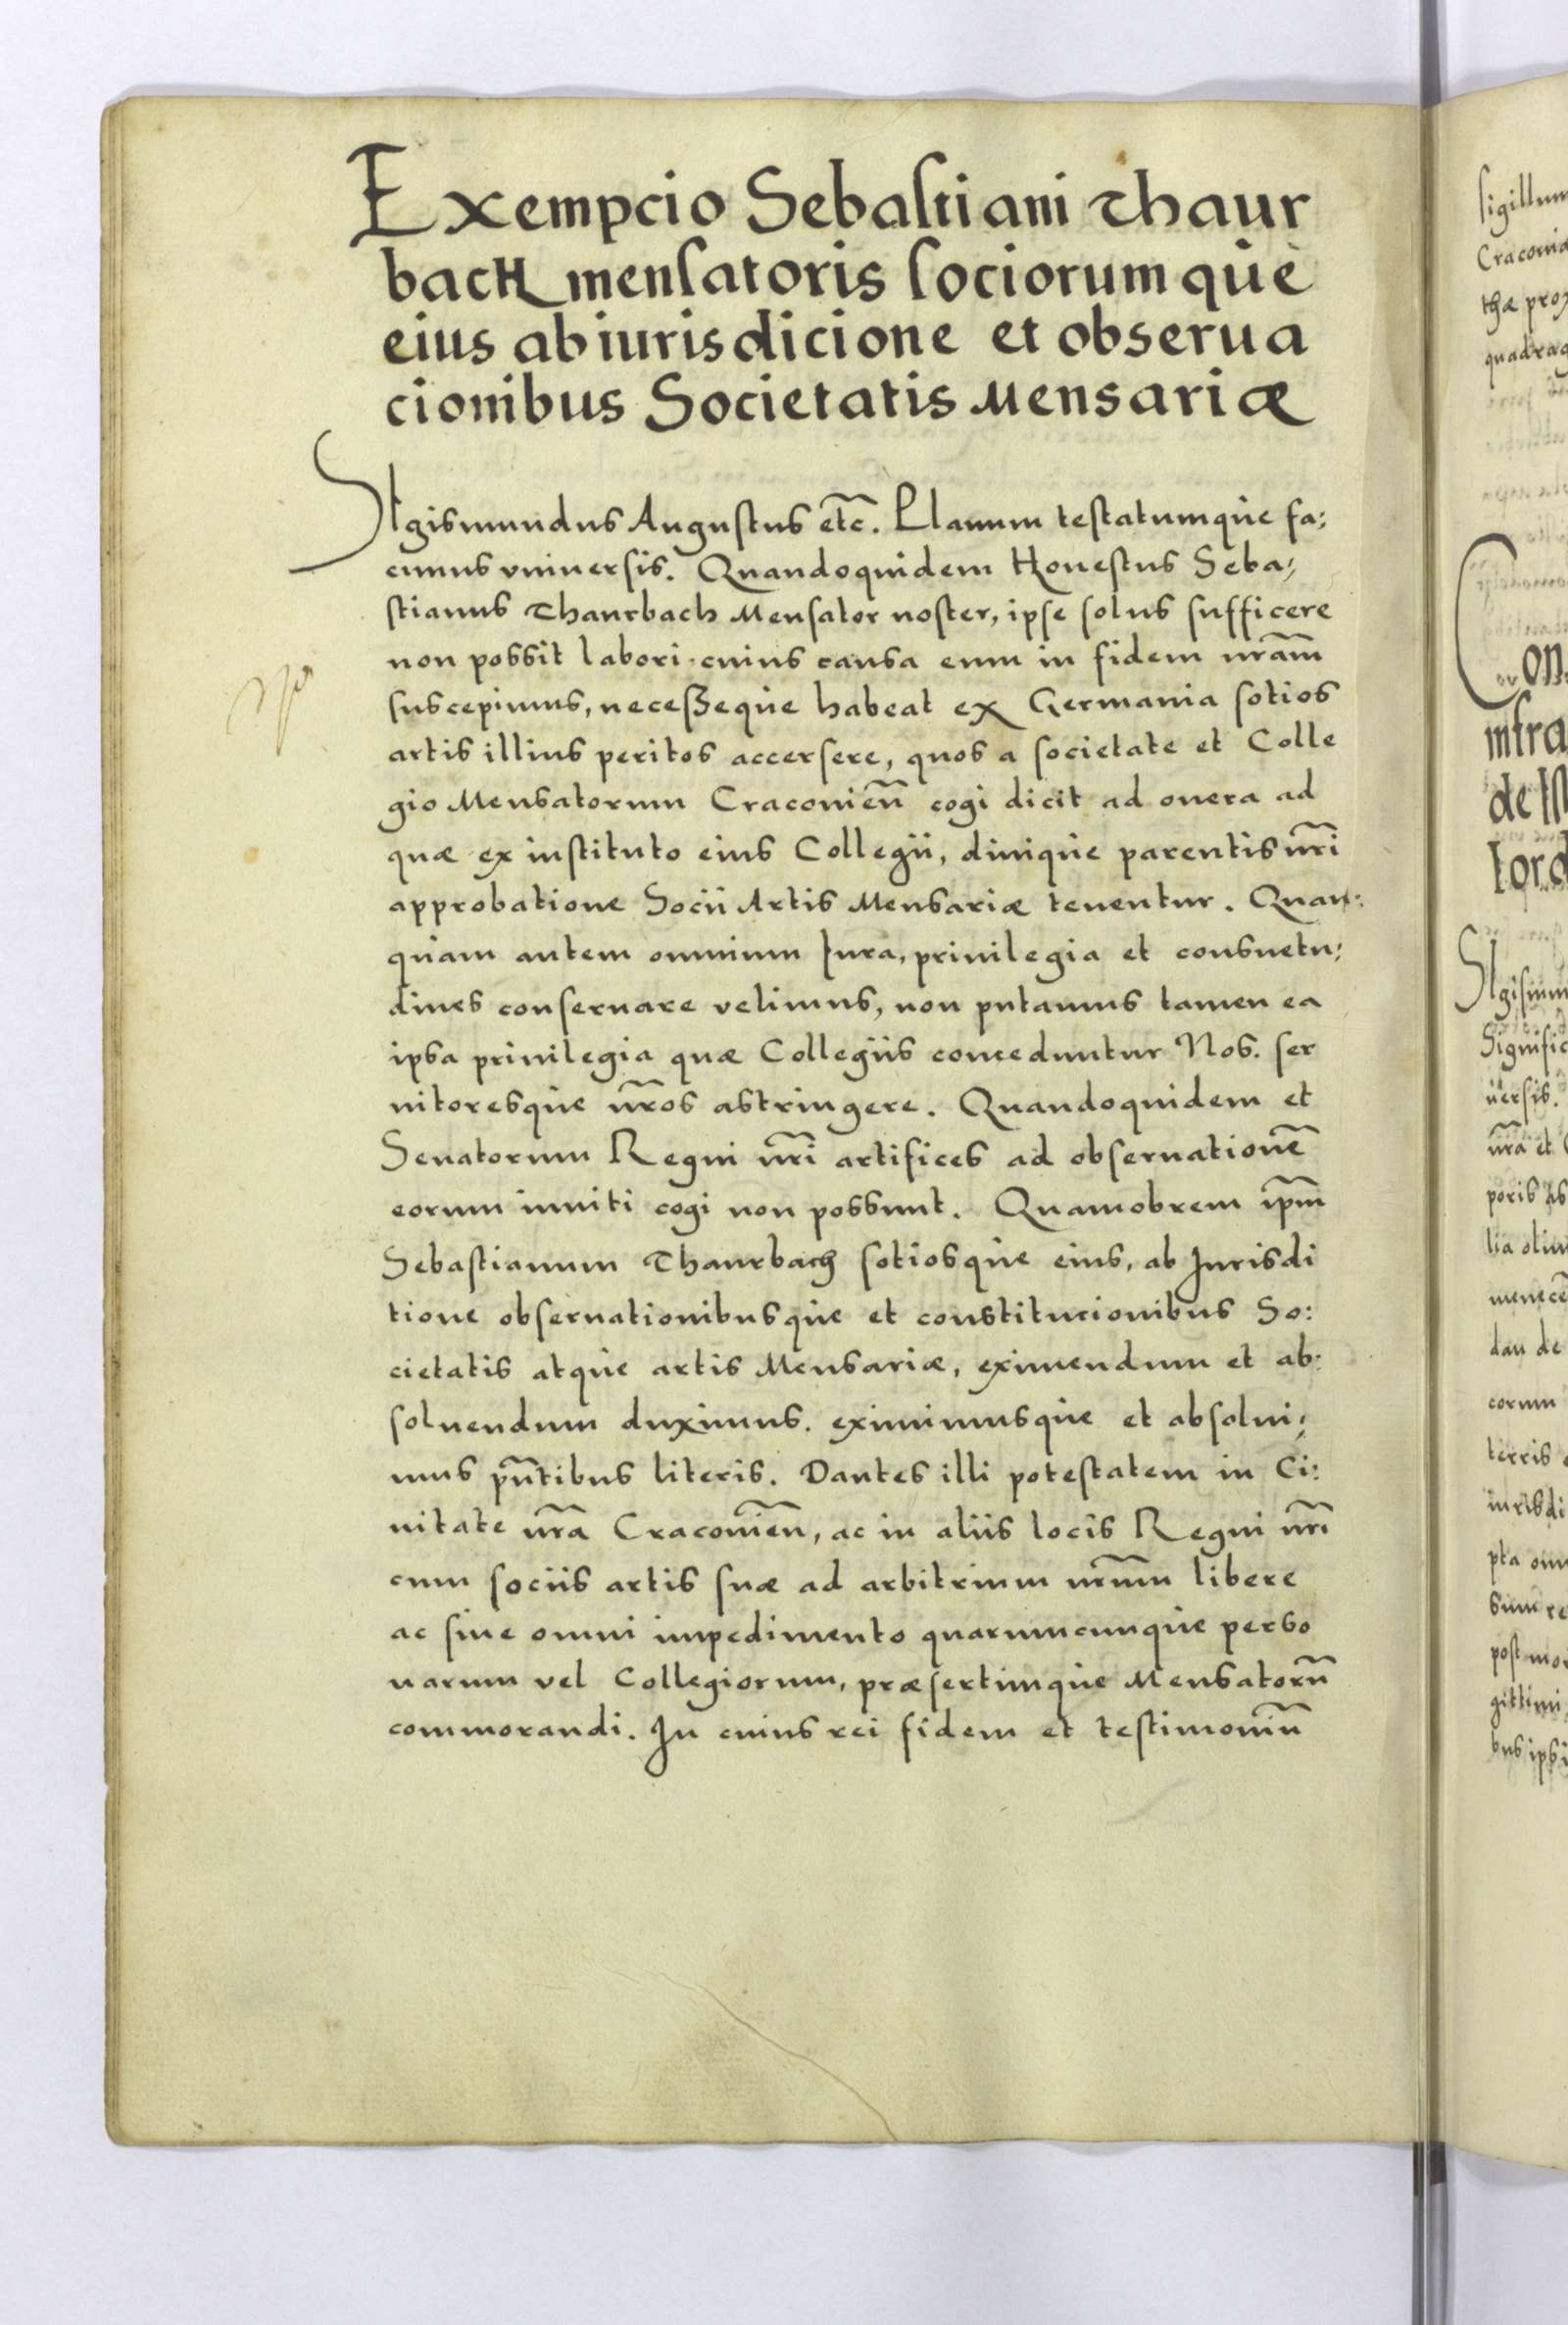 Exempcio Sebastiani Thaur
bach mensatoris sociorumque
eius ab iurisdicione et obserua
cionibus Societatis Mensariæ
SIgismundus Augustus etc̃. Planum testatumque fa;
cimus vniuersis. Quandoquidem Honestus Seba;
stianus Thaurbach Mensator noster, ipse solus sufficere
non possit labori cuius causa eum in fidem nr̃am
suscepimus, necesseque habeat ex Germania sotios
artis illius peritos accersere, quos a societate et Colle
gio Mensatorum Craconieñ cogi dicit ad onera ad
quæ ex instituto eius Collegii, diuique parentis nr̃i
approbatione Socii Artis Mensariæ tenentur. Quan:
quam autem omnium Iura, priuilegia et consuetu;
dines conseruare velimus, non putamus tamen ea
ipsa priuilegia quæ Collegiis conceduntur Nos. ser
uitoresque nr̃os astringere. Quandoquidem et
Senatorum Regni nr̃i artifices ad obseruationẽ
eorum inuiti cogi non possunt. Quamobrem ip̃m
Sebastianum Thaurbach sotiosque eius, ab Jurisdi
tione obseruationibusque et constitucionibus So:
cietatis atque artis Mensariæ, eximendum et ab:
soluendum duximus. eximimusque et absolui;
mus pñtibus literis. Dantes illi potestatem in Ci:
uitate nr̃a Cracouieñ, ac in aliis locis Regni nr̃i
cum sociis artis suæ ad arbitrium nr̃um libere
ac sine omni impedimento quarumcunque perso
narum vel Collegiorum, præsertimque Mensatorũ
commorandi. In cuius rei fidem et testimoniũ
sigillum
Cracouia
thæ prox
quadrag
on
infra
de
SIgism
Signific
uersis.
nr̃a et
poris
lia olim
dau de
eorum
terris
iurisdi
pta
post mor
gittimi
bus ipsi